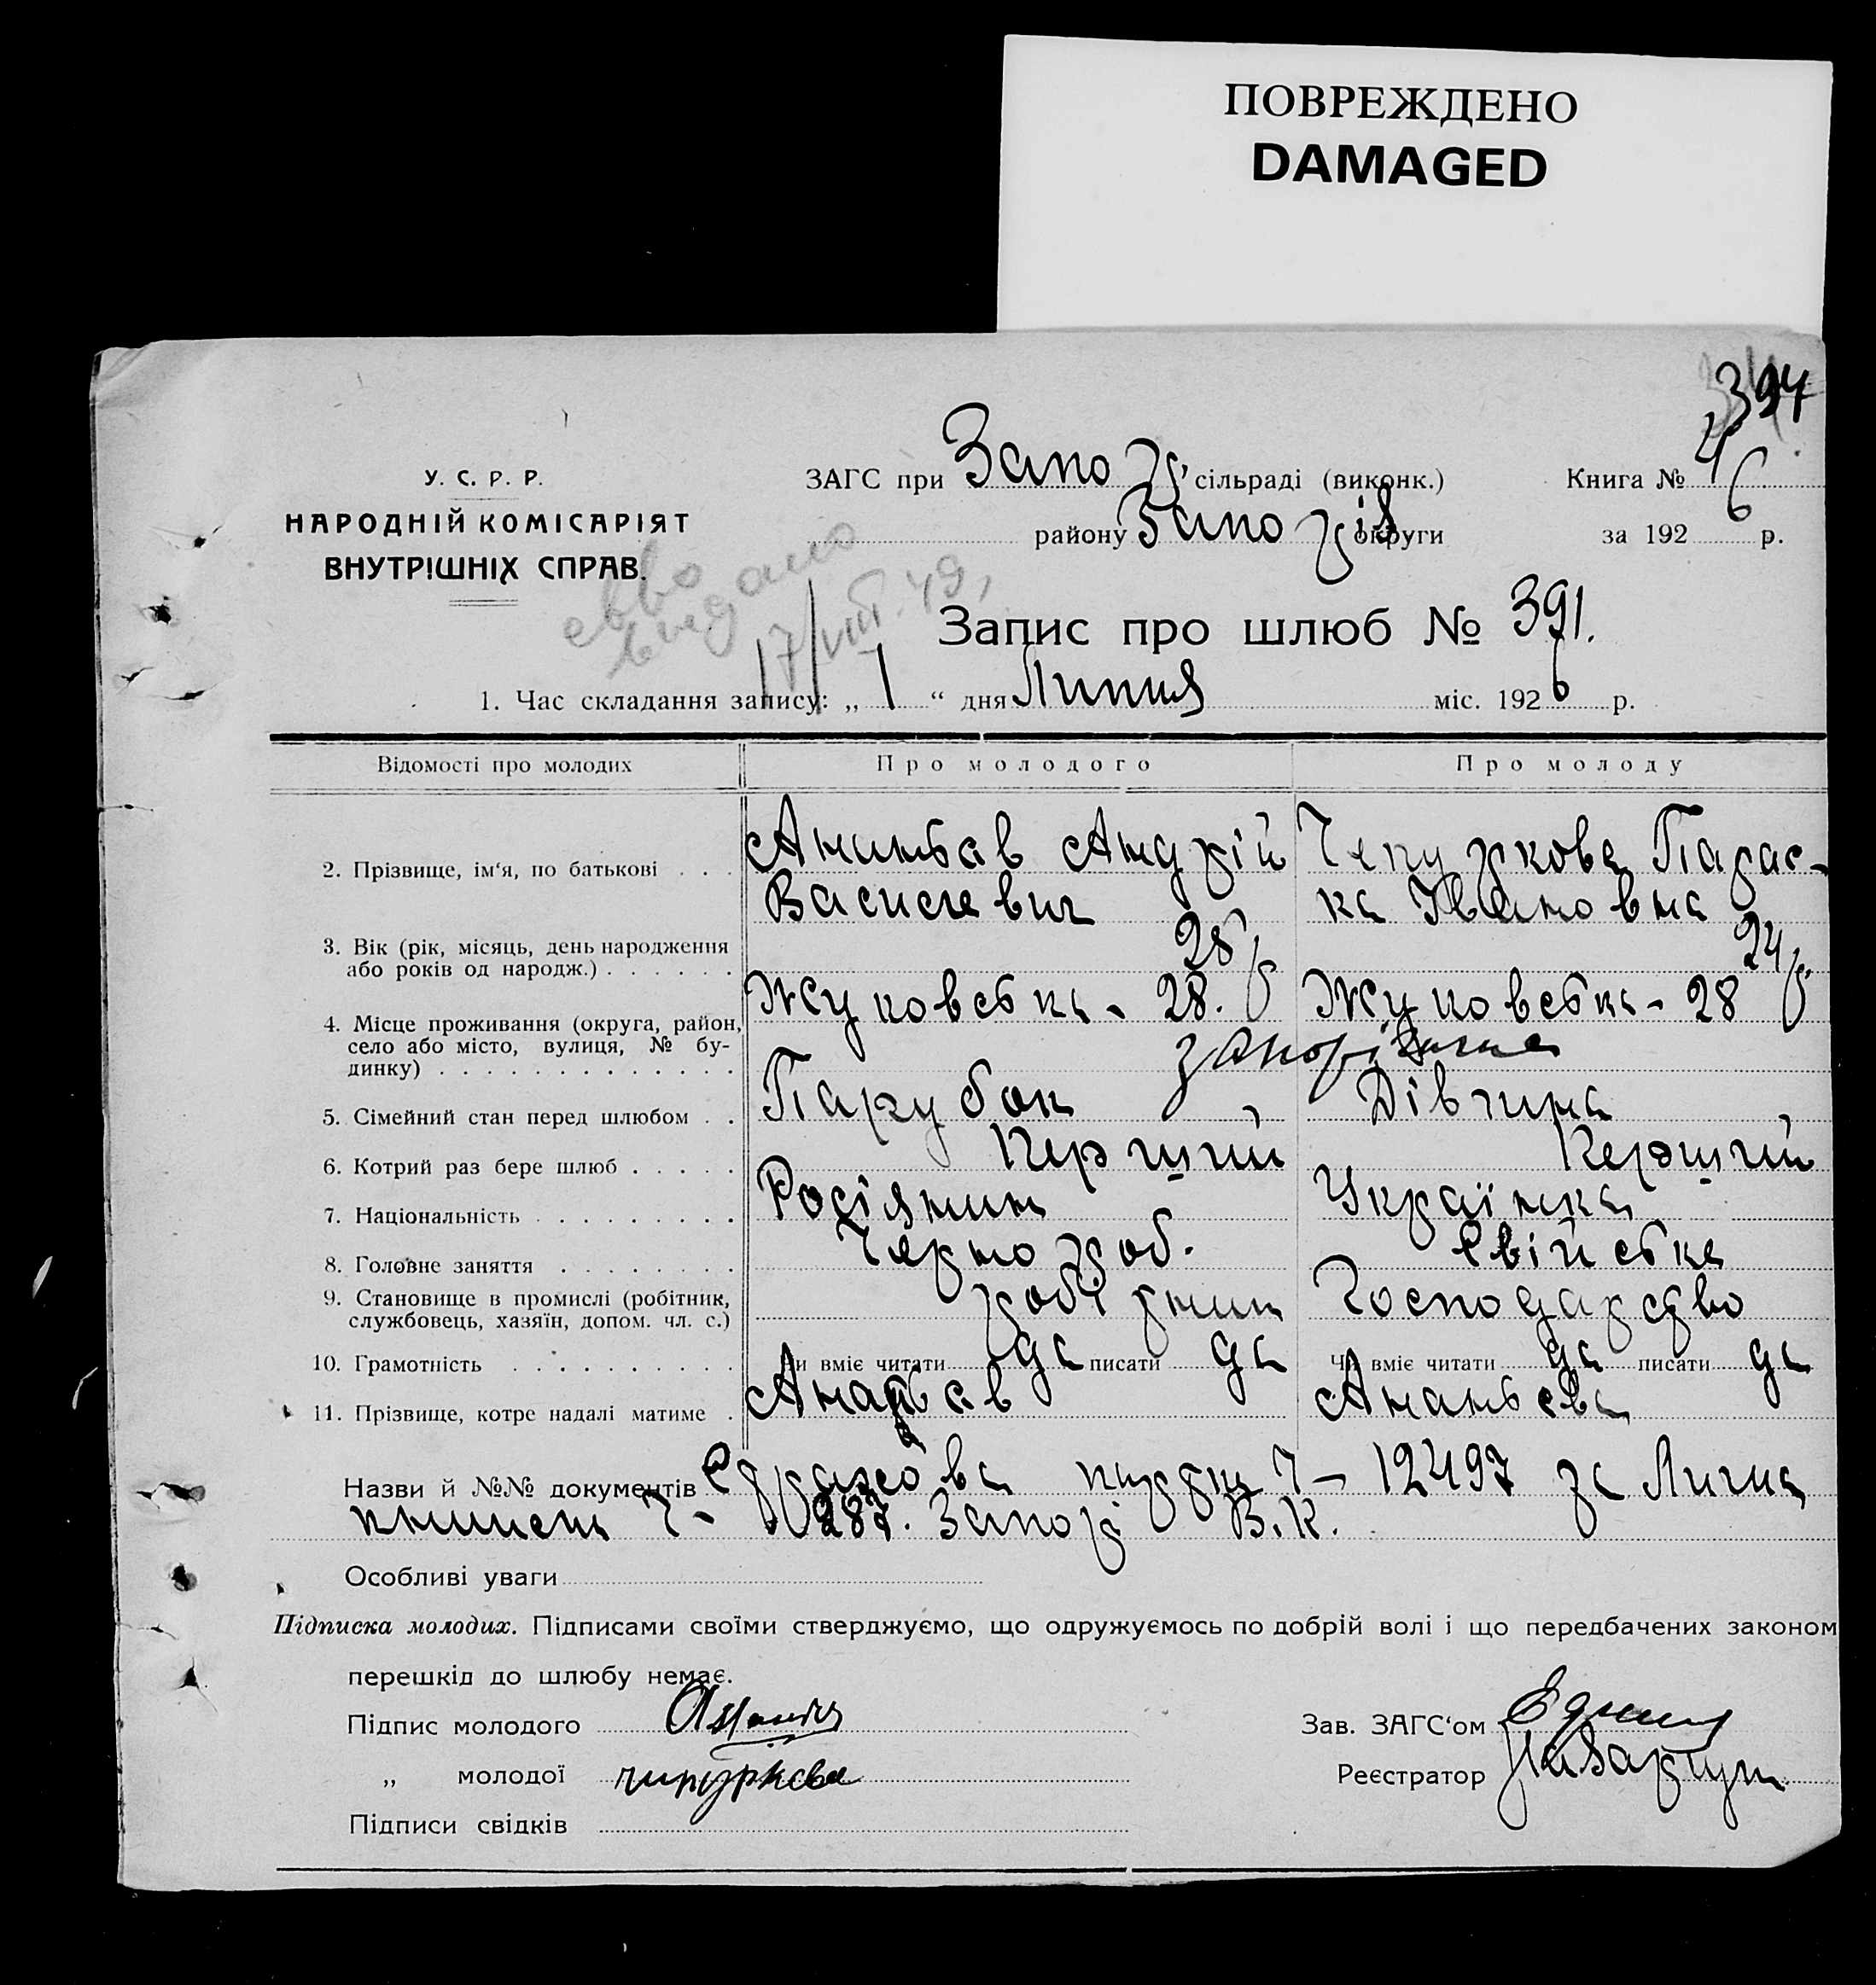 ПОВРЕЖДЕНО
DAMAGED
394
У. С. Р. Р.
НАРОДНІЙ КОМІСАРІЯТ
ВНУТРІШНІХ СПРАВ.
ЗАГС при Запо р, сільраді (виконк.)
району Запо різ округи
Книга № 4
за 1926 р.
видано
17/VIII.49,
Запис про шлюб № 391.
1. Час складання запису: „ 1 “ дня Липня міс. 1926 р.
Відомості про молодих
Про молодого
Про молоду
2. Прізвище, ім‘я, по батькові . . .
Ананьєв Андрій
Василевич
Чепуркова Парас-
ка Івановна
3. Вік (рік, місяць, день народження
або років од народж.) . . . . . .
28 р
24 р.
4. Місце проживання (округа, район,
село або місто, вулиця, № бу-
динку) . . . . . . . . . . . . .
Жуковська - 28.
Жуковська - 28
Запоріжжя
5. Сімейний стан перед шлюбом . .
Парубок
Дівчина
6. Котрий раз бере шлюб . . . . .
Перший
Перший
7. Національність . . . . . . . . .
Росіянин
Українка
8. Головне заняття . . . . . . . .
Чернороб.
Свійське
9. Становище в промислі (робітник,
службовець, хазяїн, допом. чл. с.)
робітник
Господарство
10. Грамотність . . . . . . . . . .
Чи вміє читати да писати да
Чи вміє читати да писати да
11. Прізвище, котре надалі матиме .
Ананьєв
Ананьєва
Назви й №№ документів Страхова картка Ч - 12497 за Лична
книжень Ч - 287. Запор В.К.
Особливі уваги
Підписка молодих. Підписами своїми стверджуємо, що одружуємось по добрій волі і що передбачених законом
перешкід до шлюбу немає.
Підпис молодого
Зав. ЗАГС‘ом
„ молодої чипуркова
Реєстратор
Підписи свідків